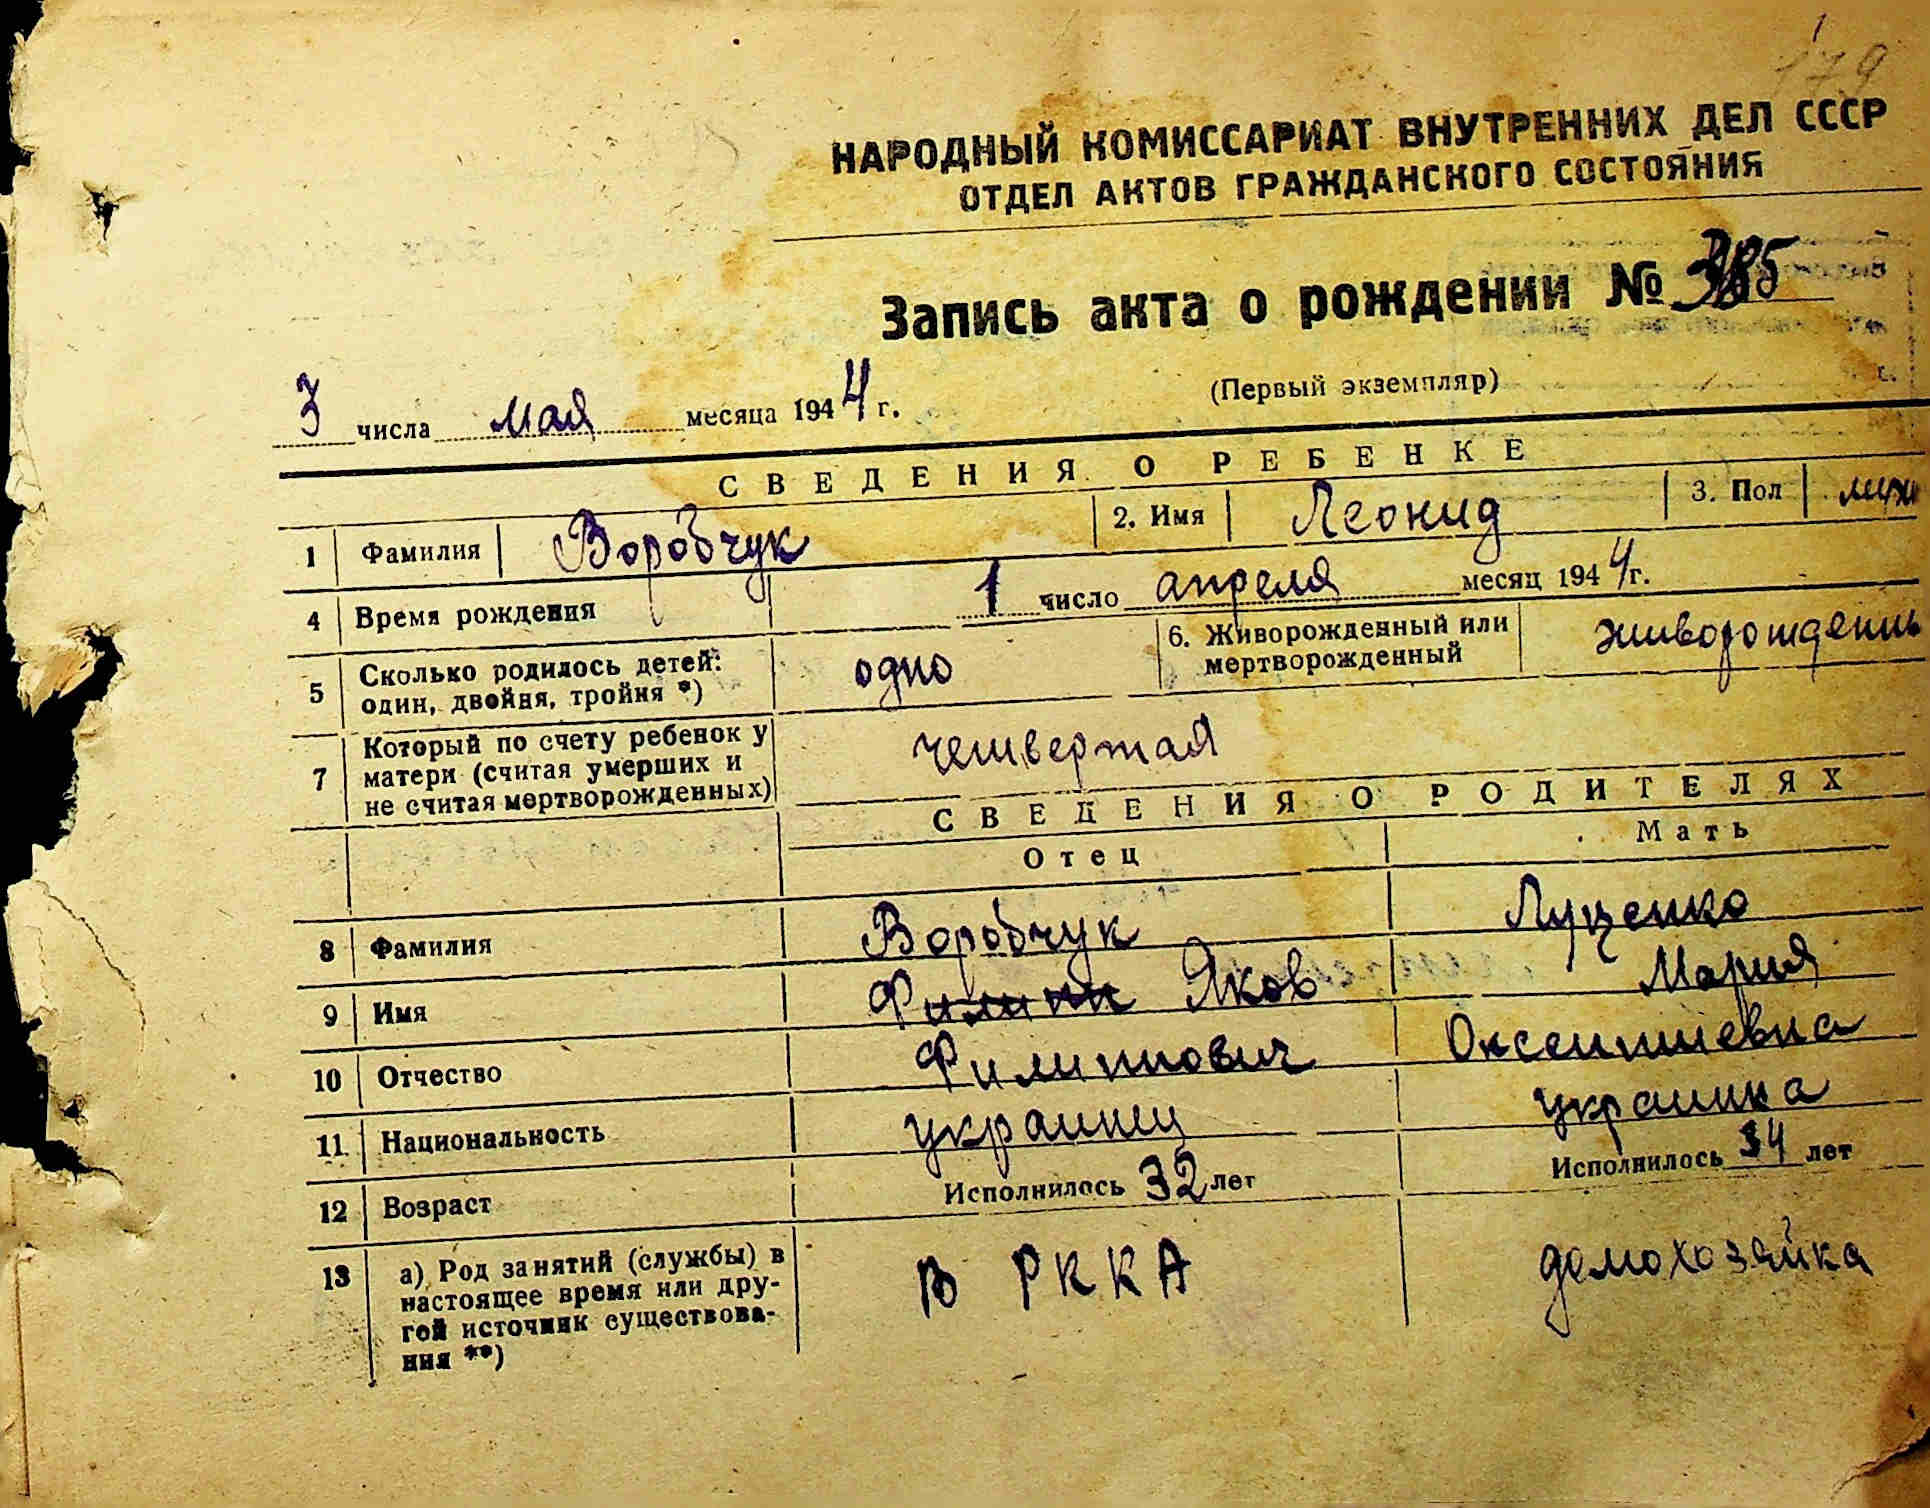 179
НАРОДНЫЙ КОМИССАРИАТ ВНУТРЕННИХ ДЕЛ СССР
ОТДЕЛ АКТОВ ГРАЖДАНСКОГО СОСТОЯНИЯ
Запись акта о рождении №
3 числа мая месяца 1944 г.
(Первый экземпляр)
СВЕДЕНИЯ О РЕБЕНКЕ
1 Фамилия Воробчук 2. Имя Леонид 3. Пол муж
4 Время рождения 1 число апреля месяц 1944 г.
5 Сколько родилось детей: один, двойня, тройня *) одно 6. Живорожденный или мертворожденный живорожденны
7 Который по счету ребенок у матери (считая умерших и не считая мертворожденных) четвертая
СВЕДЕНИЯ О РОДИТЕЛЯХ
Отец Мать
8 Фамилия Воробчук Луценко
9 Имя Филипп Яков Мария
10 Отчество Филиппович Оксентиевна
11 Национальность украинец украинка
12 Возраст Исполнилось 32 лет Исполнилось 34 лет
13 а) Род занятий (службы) в настоящее время или дру-
гой источник существова-
ния **) в РККА домохозяйка